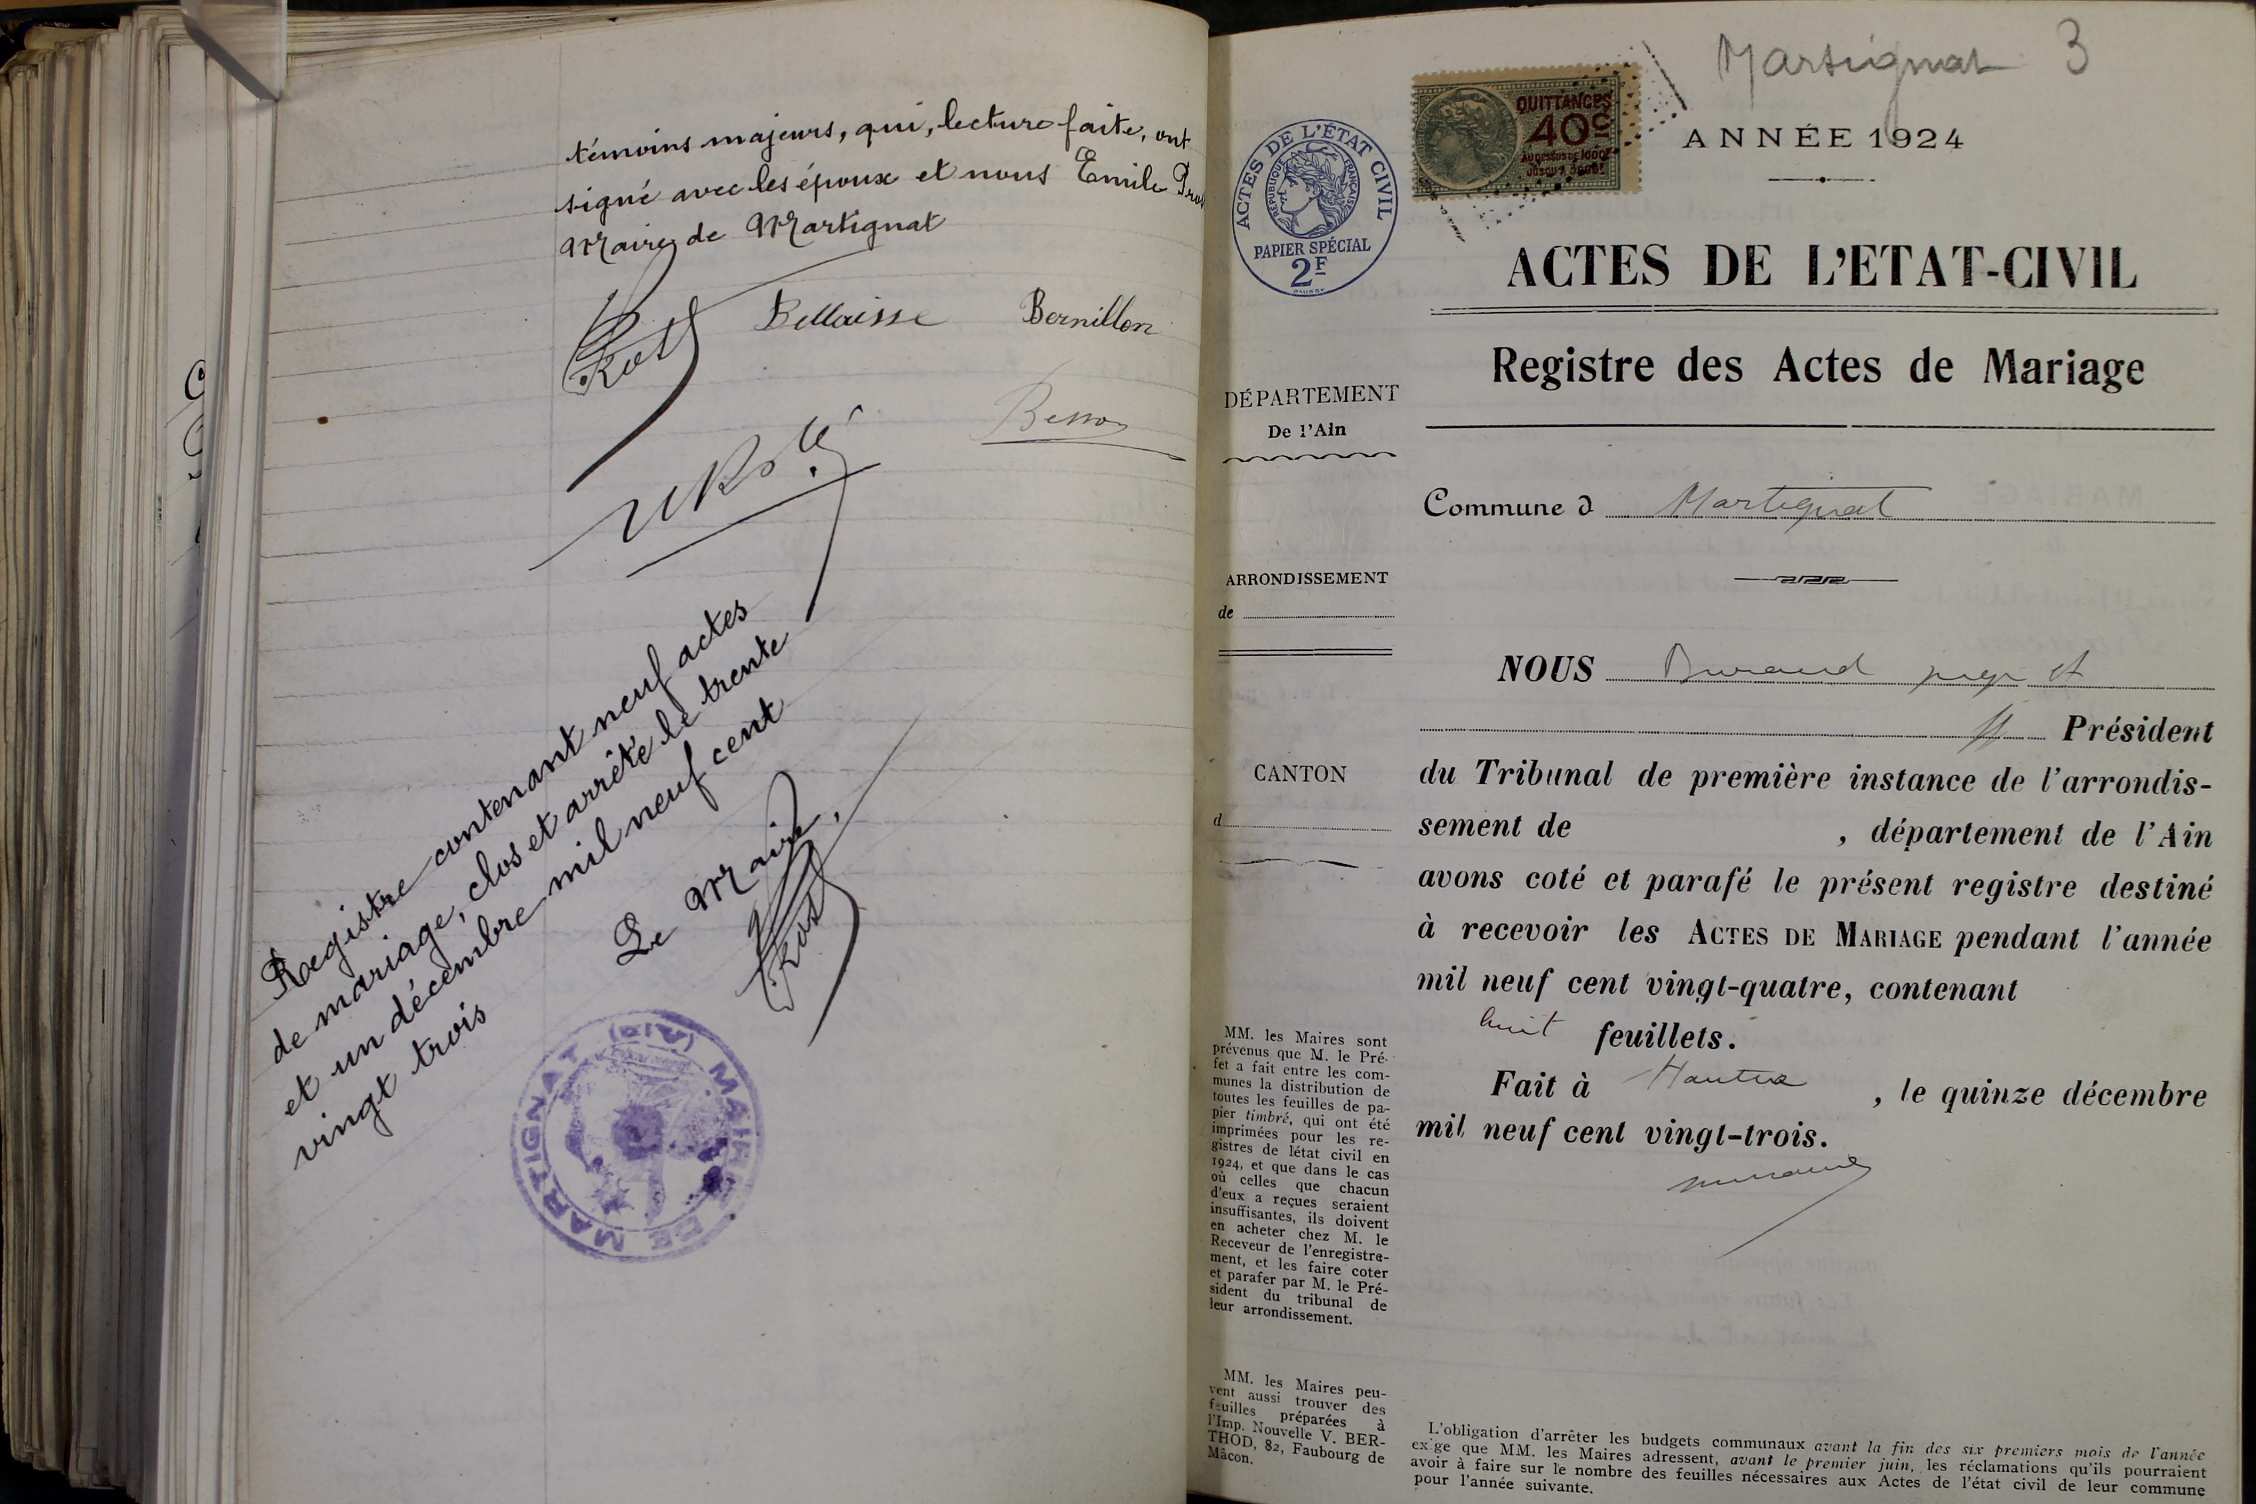 témoins majeurs, qui, lecture faite, ont
signé avec les époux et nous Emile Prost
Maire de Martignat
Prost Bellaisse Bernillon
Besson
Registre contenant neuf actes
de mariage, clos et arrêté le trente
et un décembre mil neuf cent
vingt trois
Le Maire,
Prost
MAIRIE DE MARTIGNAT (AIN)
Martignat 3
QUITTANCES
40c
ANNÉE 1924
ACTES DE L'ÉTAT CIVIL
RÉPUBLIQUE FRANÇAISE
PAPIER SPÉCIAL
2F
ACTES DE L'ETAT-CIVIL
Registre des Actes de Mariage
DÉPARTEMENT
De l'Ain
Commune d Martignat
ARRONDISSEMENT
de
NOUS Durand juge et
Président
CANTON
d
du Tribunal de première instance de l'arrondis-
sement de , département de l'Ain
avons coté et parafé le présent registre destiné
à recevoir les ACTES DE MARIAGE pendant l'année
mil neuf cent vingt-quatre, contenant
huit feuillets.
Fait à Nantua , le quinze décembre
mil neuf cent vingt-trois.
MM. les Maires sont
prévenus que M. le Pré-
fet a fait entre les com-
munes la distribution de
toutes les feuilles de pa-
pier timbré, qui ont été
imprimées pour les re-
gistres de létat civil en
1924, et que dans le cas
où celles que chacun
d'eux a reçues seraient
insuffisantes, ils doivent
en acheter chez M. le
Receveur de l'enregistre-
ment, et les faire coter
et parafer par M. le Pré-
sident du tribunal de
leur arrondissement.
MM. les Maires peu-
vent aussi trouver des
feuilles préparées à
l'Imp. Nouvelle V. BER-
THOD, 82, Faubourg de
Mâcon.
L'obligation d'arrêter les budgets communaux avant la fin des six premiers mois de l'année
exige que MM. les Maires adressent, avant le premier juin, les réclamations qu'ils pourraient
avoir à faire sur le nombre des feuilles nécessaires aux Actes de l'état civil de leur commune
pour l'année suivante.